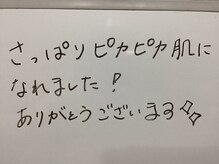 さっぱりピカピカ肌に
なれました!
ありがとうございます